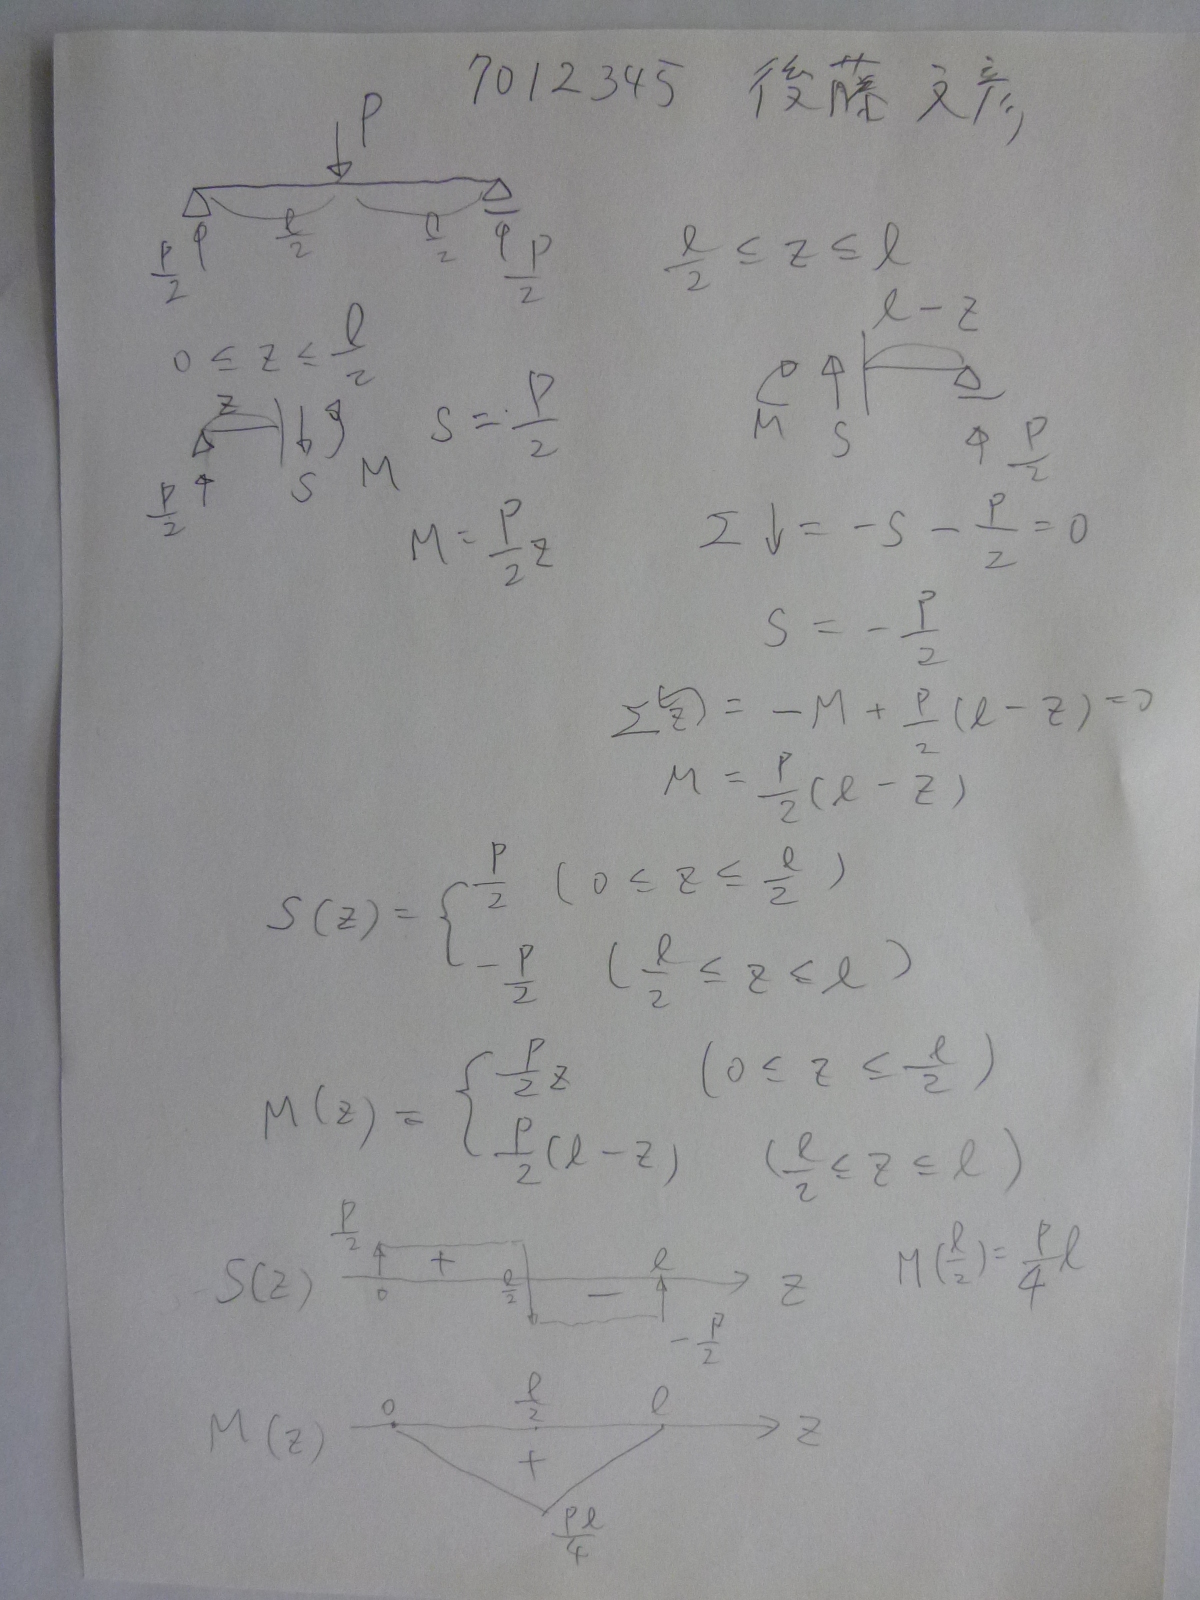 7012345 後藤 文彦
P
l/2 l/2
P/2 P/2
0 ≤ z ≤ l/2
z
P/2 S M
S = P/2
M = P/2 z
l/2 ≤ z ≤ l
l - z
M S P/2
Σ↓ = -S - P/2 = 0
S = -P/2
= -M + P/2 (l - z) = 0
M = P/2 (l - z)
S(z) = { P/2 (0 ≤ z ≤ l/2)
-P/2 (l/2 ≤ z ≤ l)
M(z) = { P/2 z (0 ≤ z ≤ l/2)
P/2 (l - z) (l/2 ≤ z ≤ l)
S(z) P/2 + 0 l/2 - l -P/2 z
M(l/2) = P/4 l
M(z) 0 l/2 l z
+
Pl/4